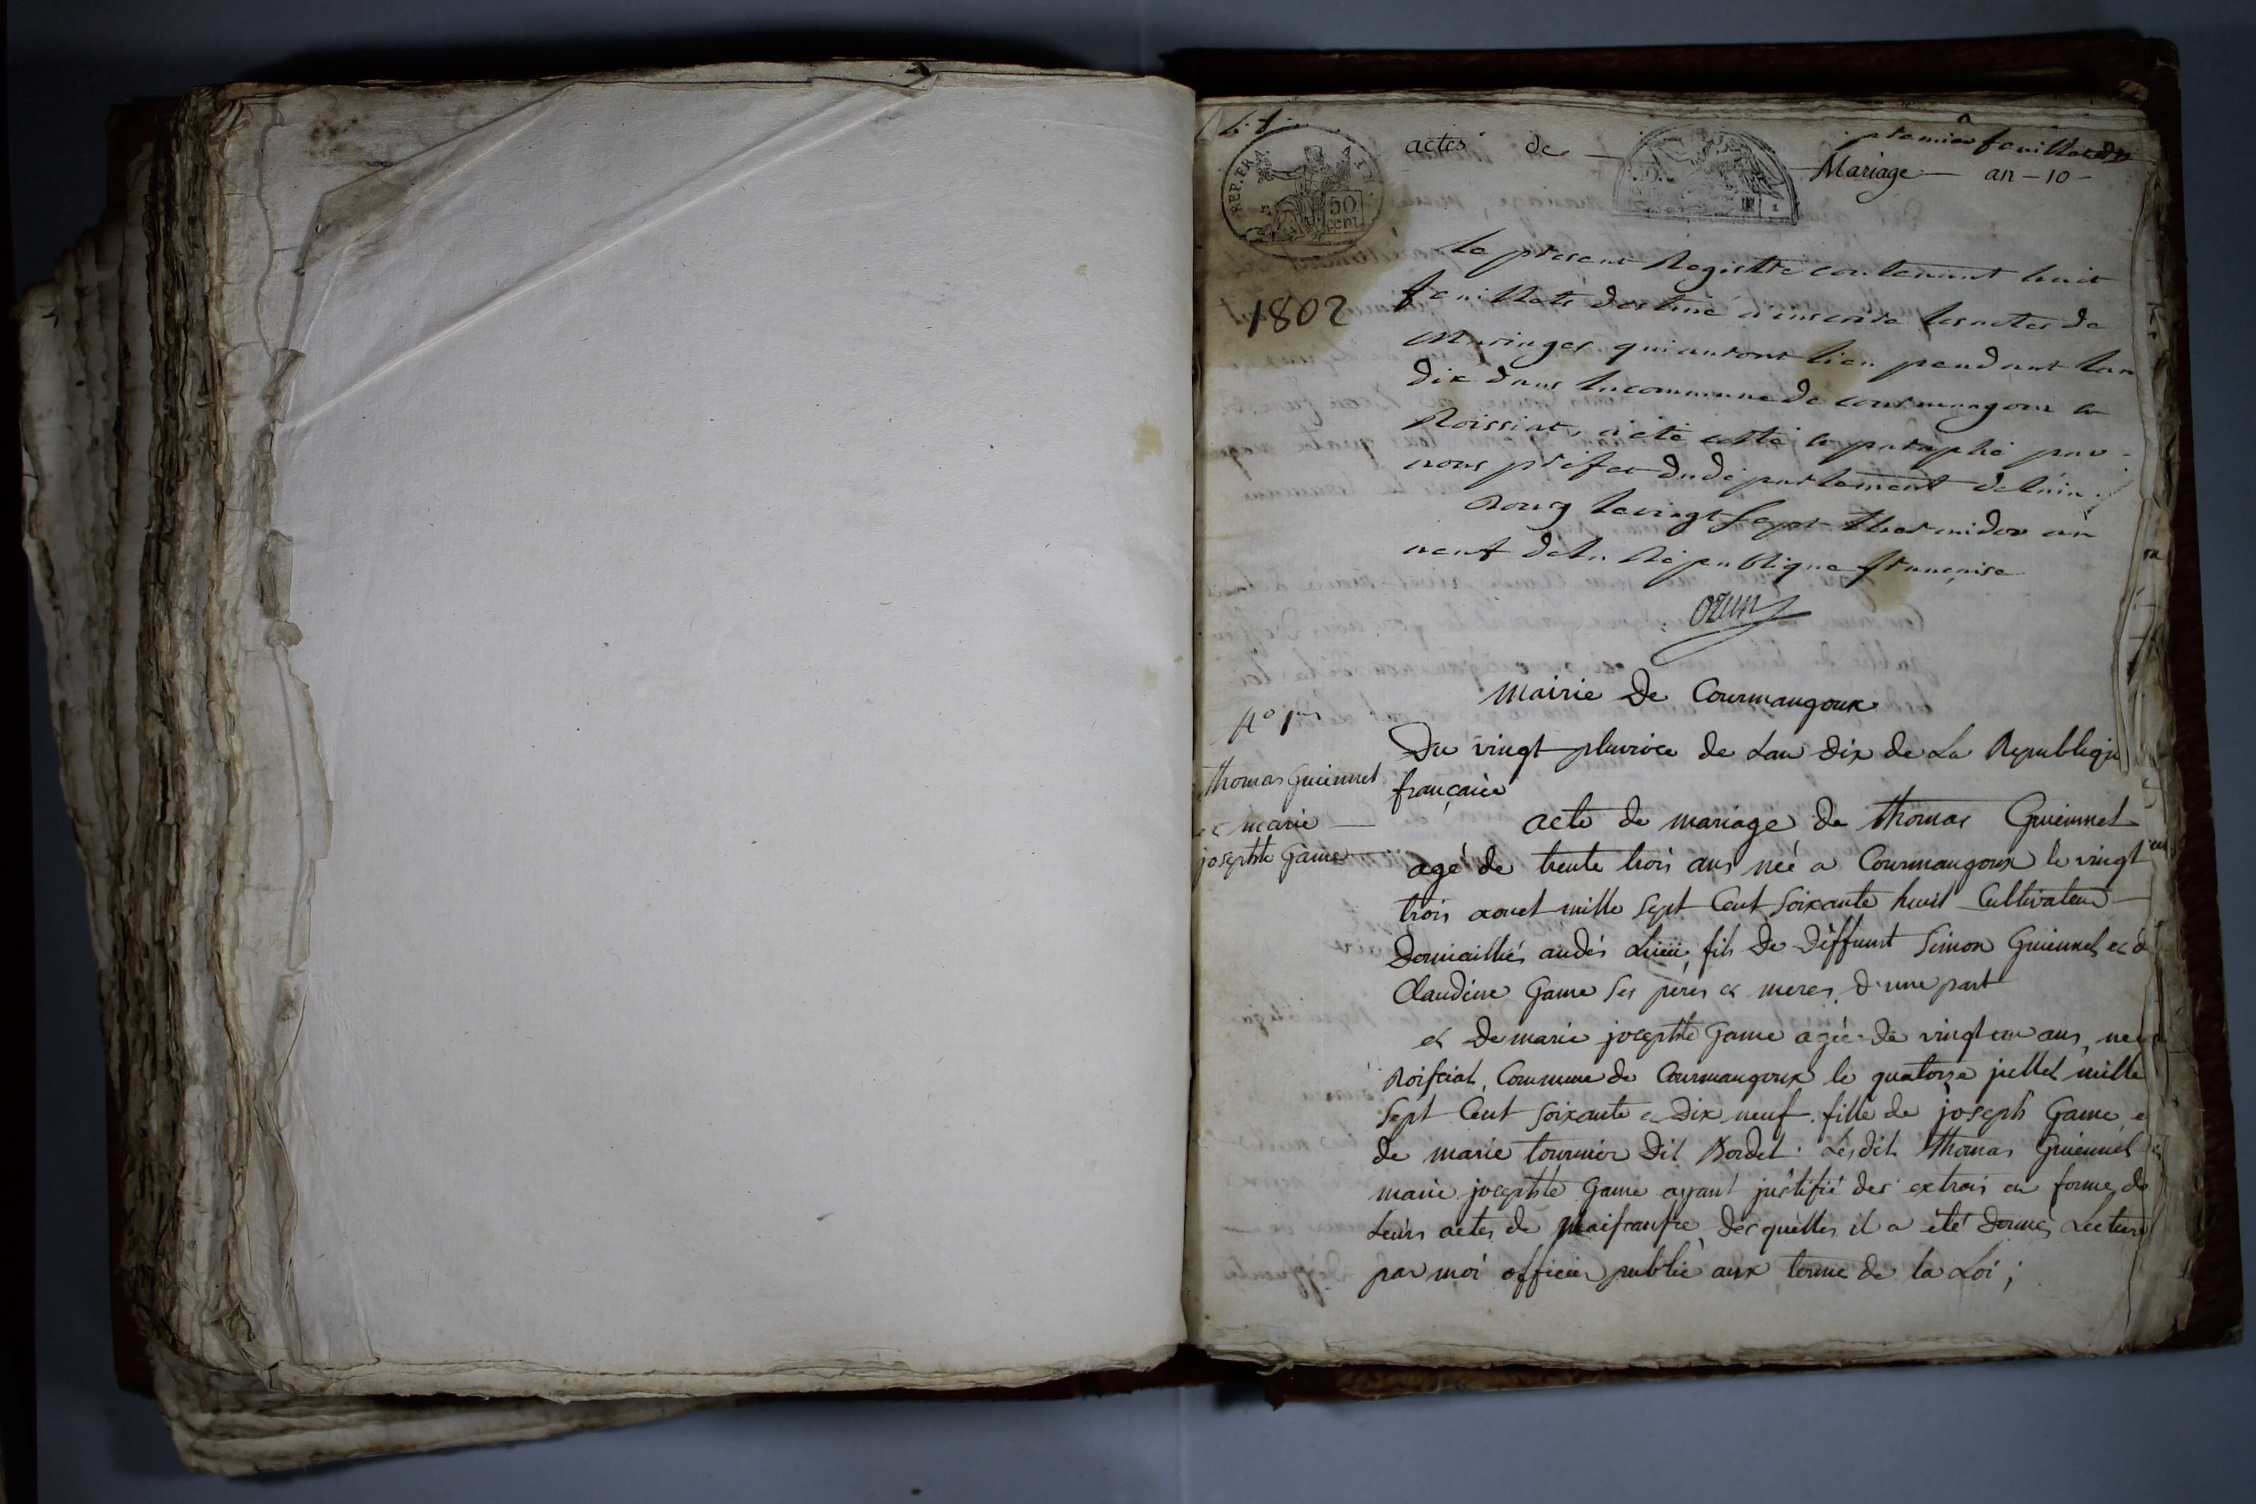 premier feuillet
actes de Mariage an - 10 -
REP. FRA.
50 cent
1802
le present Registre contenant huit
feuillets destiné a inscrire les actes de
Mariages qui auront lieu pendant lan
dix dans la commune de courmangoux et
Roissiat, a été cotté et paraphé par
nous préfet du département de lain.
Bourg le vingt sept thermidor an
neuf de la République française
Mairie De Courmangoux
Du vingt pluviose de Lan dix de La Republique
française
thomas Guiennet
et marie
josephte Game
acte de mariage de thomas Guiennet
agé de trente trois ans née a Courmangoux le vingt
trois aouet mille sept Cent soixante huit Cultivateur
Domicilliés audés Lieu, fils De Déffunt Simon Guiennet et d
Claudine Game ses peres et meres d'une part
et De marie josephte Game agée de vingt un ans, née
Roissiat, Commune de Courmangoux le quatorze juillet mille
sept Cent soixante et Dix neuf fille de joseph Game e
de marie tournier Dit Bordet. Lesdit thomas Guiennet
marie josephte Game ayant justifié des extrais en forme de
Leurs actes de desquelles il a été donné Lecture
par moi officier public aux terme de la Loi ;